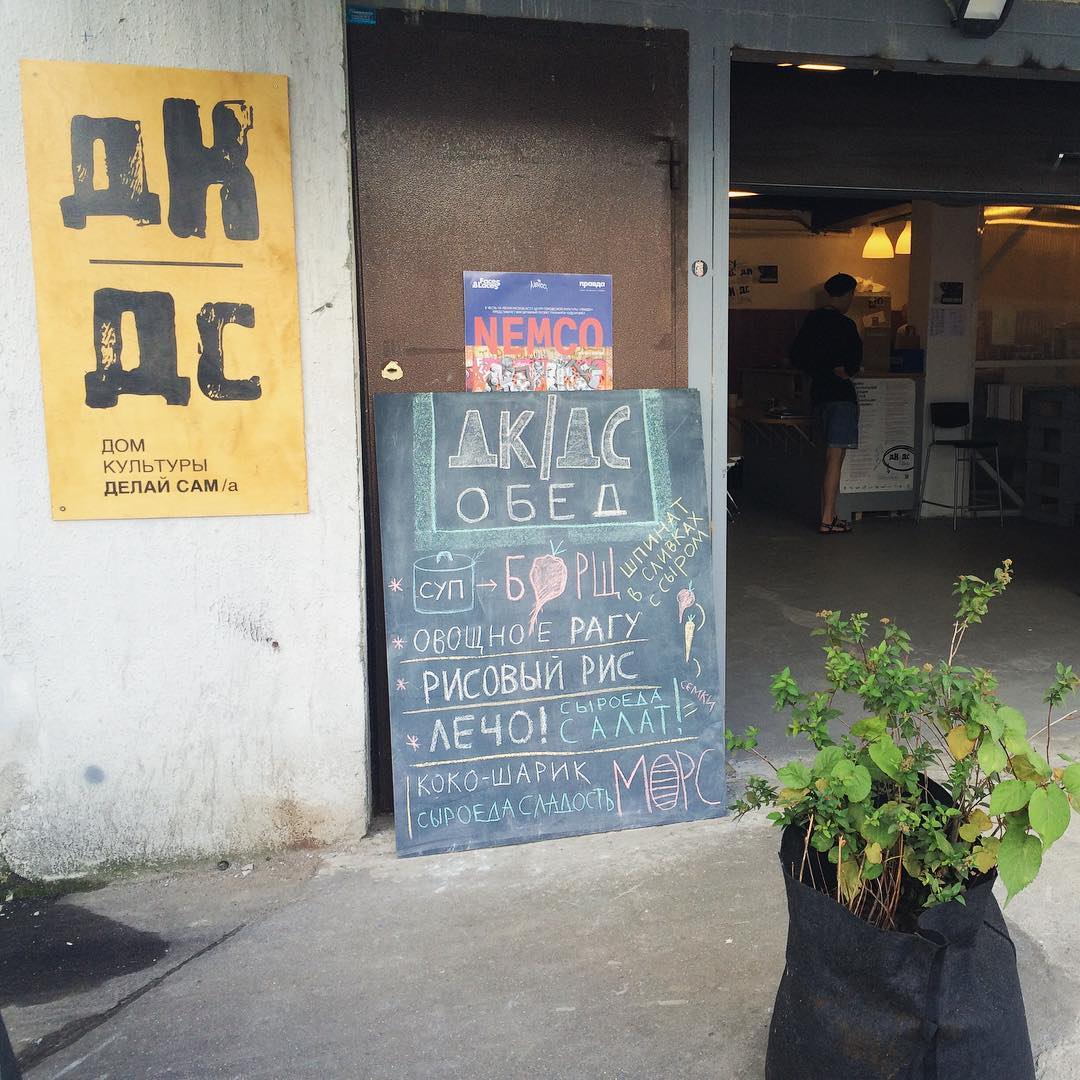 ДК
ДС
ДОМ
КУЛЬТУРЫ
ДЕЛАЙ САМ/а
Faces
&Laces
Nemco
правда
NEMCO
ДК/ДС
ОБЕД
* СУП → БОРЩ
ШПИНАТ
В СЛИВКАХ
С СЫРОМ
* ОВОЩНОЕ РАГУ
* РИСОВЫЙ РИС
* ЛЕЧО!
СЫРОЕДА
САЛАТ!
= СЕМКИ
КОКО-ШАРИК
СЫРОЕДА СЛАДОСТЬ
МОРС
ДК ДС